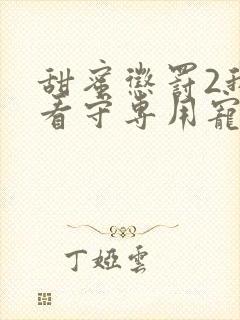 甜蜜懲罰2我
看守専用寵
丁婭雲